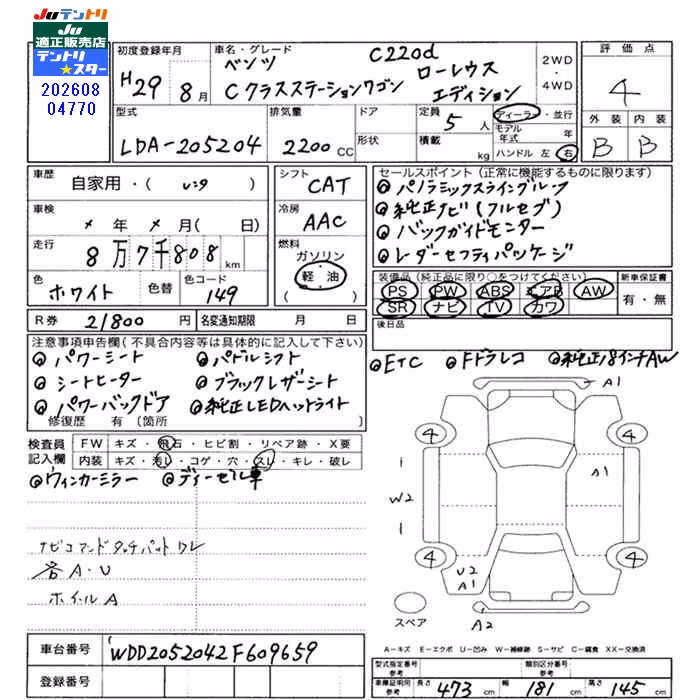 Juテントリ
Ju
適正販売店
テントリ
★スター
202608
04770
初度登録年月
H29 8月
車名・グレード
ベンツ C220d
Cクラスステーションワゴン ローレウス
エディション
2WD
・
4WD
評価点
4
外装 内装
B B
型式
LDA-205204
排気量
2200CC
ドア
形状
定員
5人
積載
kg
ディーラー・並行
モデル年式 年
ハンドル 左 右
車歴
自家用・( )
車検
×年×月( 日)
走行
8万7千808km
色
ホワイト
色替
色コード
149
シフト
CAT
冷房
AAC
燃料
ガソリン
軽油
( )
セールスポイント(正常に機能するものに限ります)
パノラミックスライングルーフ
純正ナビ(フルセグ)
バックガイドモニター
レーダーセフティパッケージ
装備品(純正品に限り○をつけてください)
PS PW ABS エアB AW
SR ナビ TV カワ
新車保証書
有・無
後日品
R券 21800円
名変通知期限 月 日
注意事項申告欄(不具合内容等は具体的に記入して下さい)
パワーシート パドルシフト
シートヒーター ブラックレザーシート
パワーバックドア 純正LEDヘッドライト
修復歴 有 (箇所
ETC Fドラレコ 純正18インチAW
検査員
記入欄
FW キズ・飛石・ヒビ割・リペア跡・X要
内装 キズ・汚れ・コゲ・穴・スレ・キレ・破レ
ウィンカーミラー ディーゼル車
ナビコマンドタッチパットワレ
各A・U
ホイールA
A1
4 4
A1
W2
4 4
U2
A1
A2
スペア
A－キズ E－エクボ U－凹み W－補修跡 S－サビ C－腐食 XX－交換済
車台番号 WDD2052042F609659
登録番号
型式指定番号
参考
類別区分番号
参考
車庫証明用
参考
長さ 473cm 幅 181cm 高さ 145cm